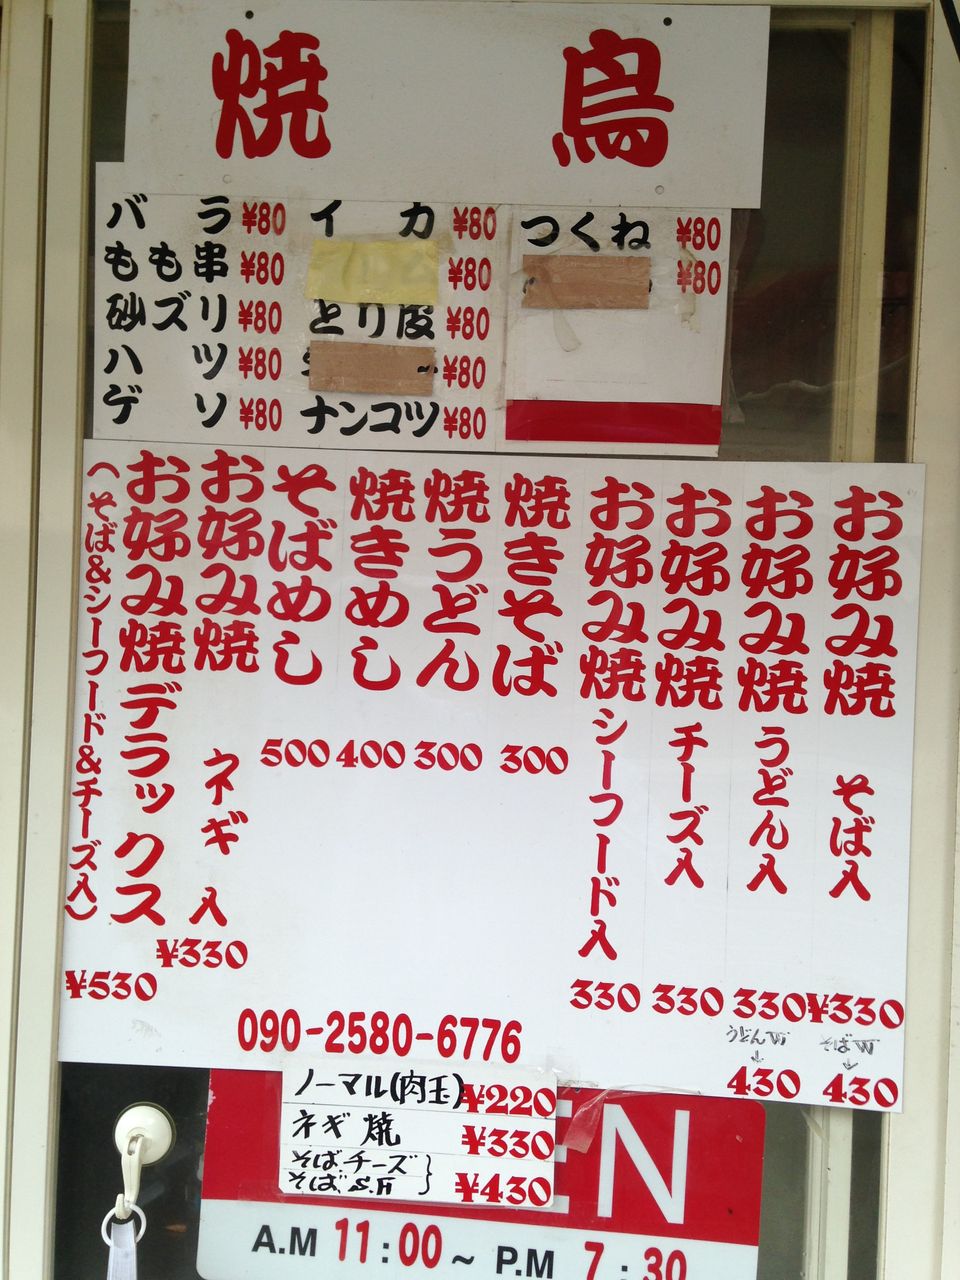 焼鳥
バラ ¥80
もも串 ¥80
砂ズリ ¥80
ハツ ¥80
ゲソ ¥80
イカ ¥80
¥80
とり皮 ¥80
¥80
ナンコツ ¥80
つくね ¥80
¥80
お好み焼 そば入 ¥330
そばW 430
お好み焼 うどん入 330
うどんW 430
お好み焼 チーズ入 330
お好み焼 シーフード入 330
焼きそば 300
焼うどん 300
焼きめし 400
そばめし 500
お好み焼 ネギ入 ¥330
お好み焼デラックス
(そば&シーフード&チーズ入) ¥530
090-2580-6776
ノーマル(肉玉) ¥220
ネギ焼 ¥330
そば.チーズ
そば.S.H } ¥430
EN
A.M 11:00~P.M 7:30